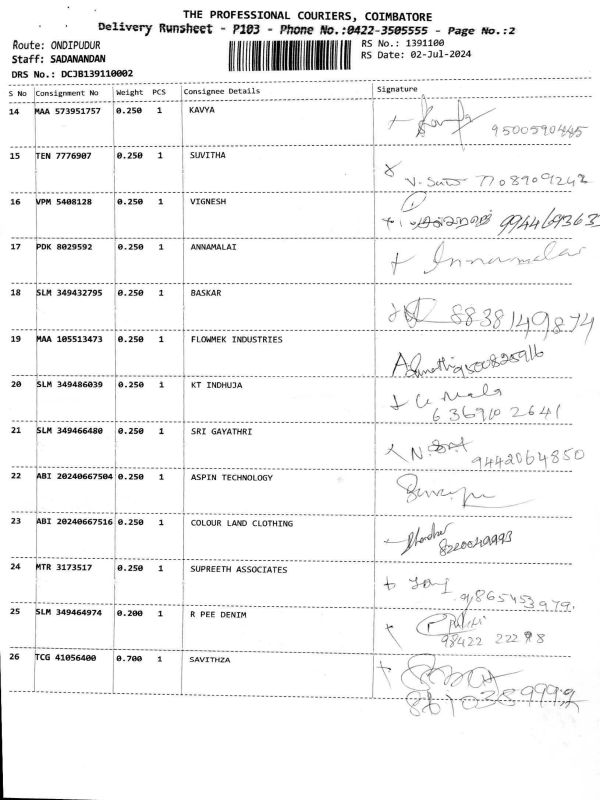 THE PROFESSIONAL COURIERS, COIMBATORE
Delivery Runsheet - P103 - Phone No.:0422-3505555 - Page No.:2
Route: ONDIPUDUR
RS No.: 1391100
Staff: SADANANDAN
RS Date: 02-Jul-2024
DRS No.: DCJB139110002
S No Consignment No Weight PCS Consignee Details Signature
14 MAA 573951757 0.250 1 KAVYA
9500590445
15 TEN 7776907 0.250 1 SUVITHA
7708909242
16 VPM 5408128 0.250 1 VIGNESH
17 PDK 8029592 0.250 1 ANNAMALAI
Annamalai
18 SLM 349432795 0.250 1 BASKAR
8838149874
19 MAA 105513473 0.250 1 FLOWMEK INDUSTRIES
20 SLM 349486039 0.250 1 KT INDHUJA
Mala
636910 2641
21 SLM 349466480 0.250 1 SRI GAYATHRI
9442064850
22 ABI 20240667504 0.250 1 ASPIN TECHNOLOGY
23 ABI 20240667516 0.250 1 COLOUR LAND CLOTHING
24 MTR 3173517 0.250 1 SUPREETH ASSOCIATES
9865453979.
25 SLM 349464974 0.200 1 R PEE DENIM
26 TCG 41056400 0.700 1 SAVITHZA